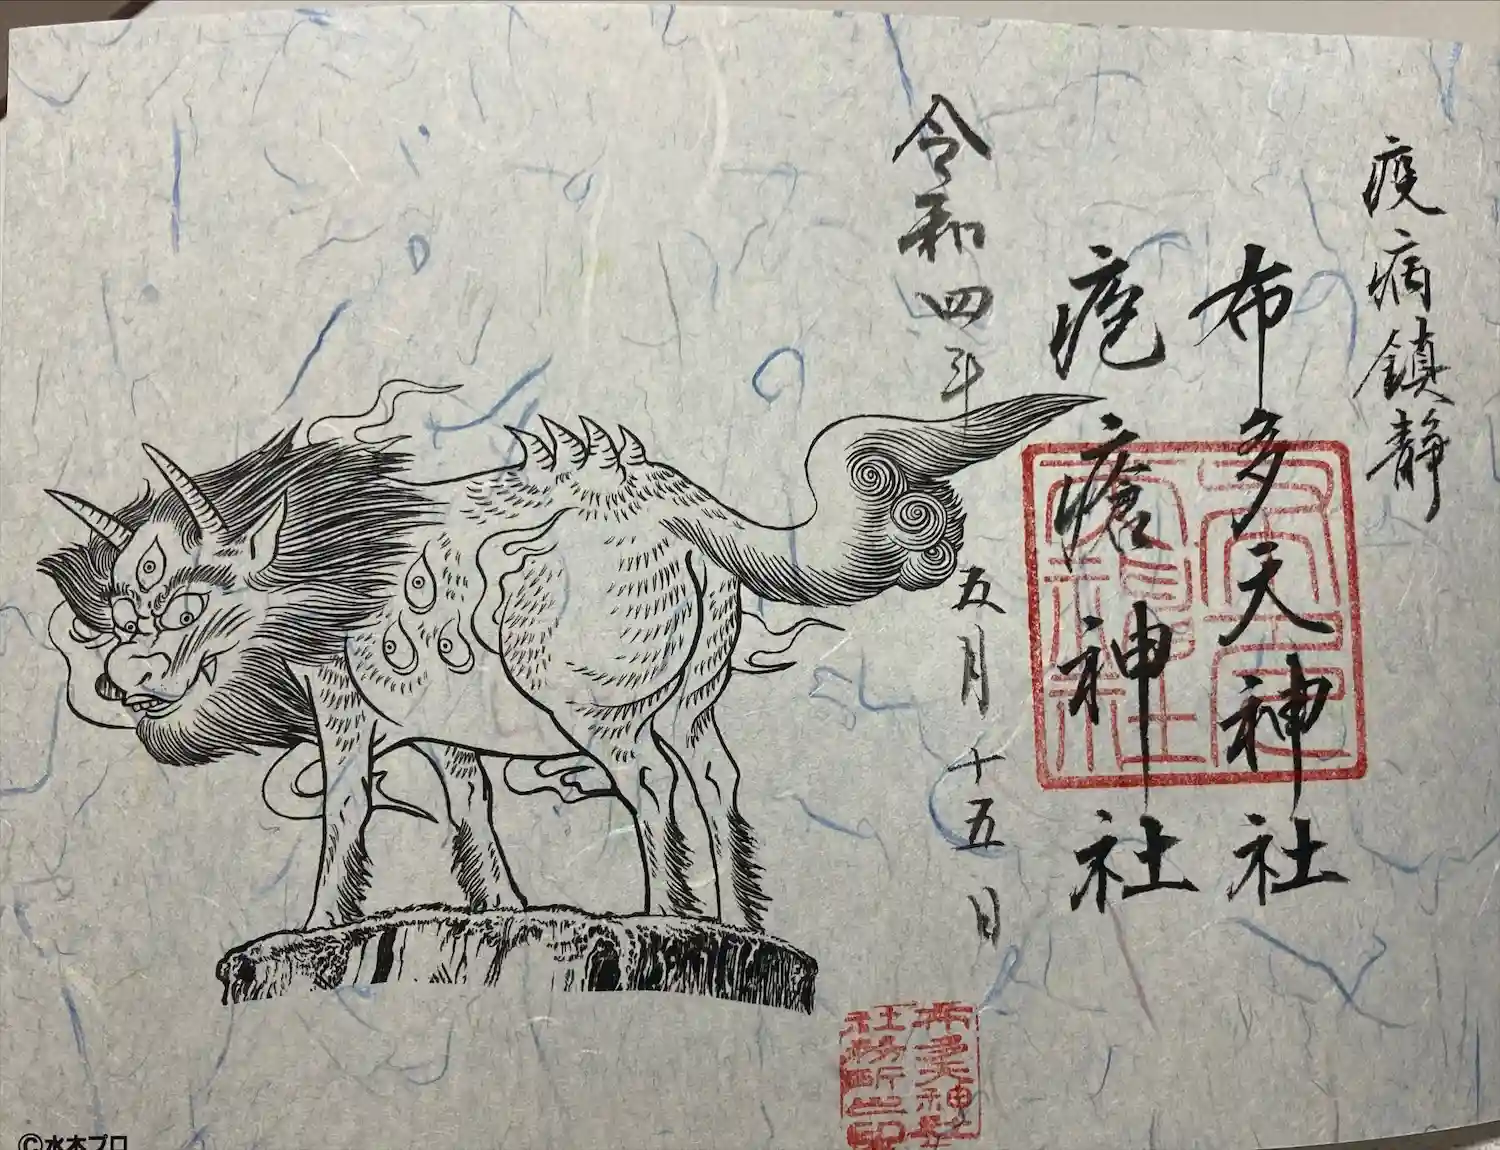 疫病鎮静
布多天神社
疱瘡神社
令和四年
五月十五日
布多天神社
社務所之印
©水木プロ